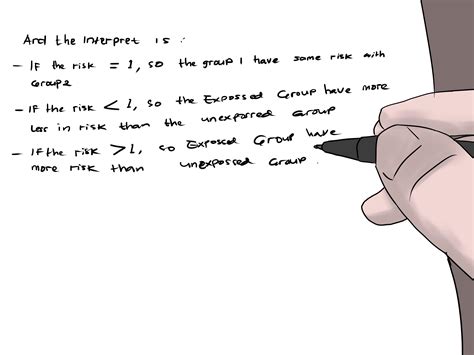 And the Interpret is :
- IF the risk = 1, so the group 1 have same risk with
Group 2
- IF the risk < 1, so the Exposssed Group have more
less in risk than the unexposred Group
- If the risk >1, so Exposed Group have
more risk than unexpossed Group.